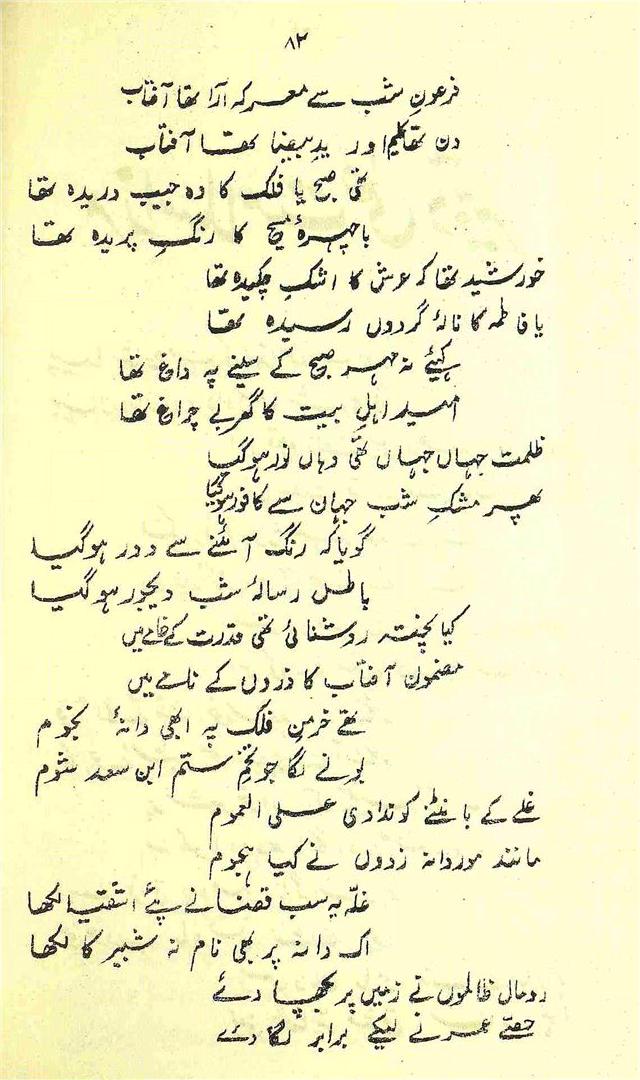 ۸۲
فرعونِ شب سے معرکہ آرا تھا آفتاب
دن تھا کلیم اور یدِ بیضا تھا آفتاب
تھی صبح یا فلک کا وہ جیب دریدہ تھا
یا چہرۂ مسیح کا رنگِ پریدہ تھا
خورشید تھا کہ عرش کا اشکِ چکیدہ تھا
یا فاطمہ کا نالۂ گردوں رسیدہ تھا
کہیٔے نہ مہر صبح کے سینے پہ داغ تھا
امید اہلِ بیت کا گھر بے چراغ تھا
ظلمت جہاں جہاں تھی وہاں نور ہوگیا
پھر مشکِ شب جہان سے کافور ہوگیا
گویا کہ رنگ آئنے سے دور ہوگیا
باطل رسالۂ شب دیجور ہوگیا
کیا پختہ روشنائی تھی قدرت کے خامے میں
مضمون آفتاب کا ذروں کے نامے میں
تھے خرمنِ فلک پہ ابھی دانۂ نجوم
بونے لگا جو تخمِ ستم ابن سعد شوم
غلے کے بانٹنے کو ندا دی علی العموم
مانند مور دانہ زدوں نے کیا ہجوم
غلّہ یہ سب قضا نے پئے اشقیا لکھا
اک دانہ پر بھی نام نہ شبیر کا لکھا
رومال ظالموں نے زمیں پر بچھا دئے
حصّے عمر نے لیکے برابر لگا دئے